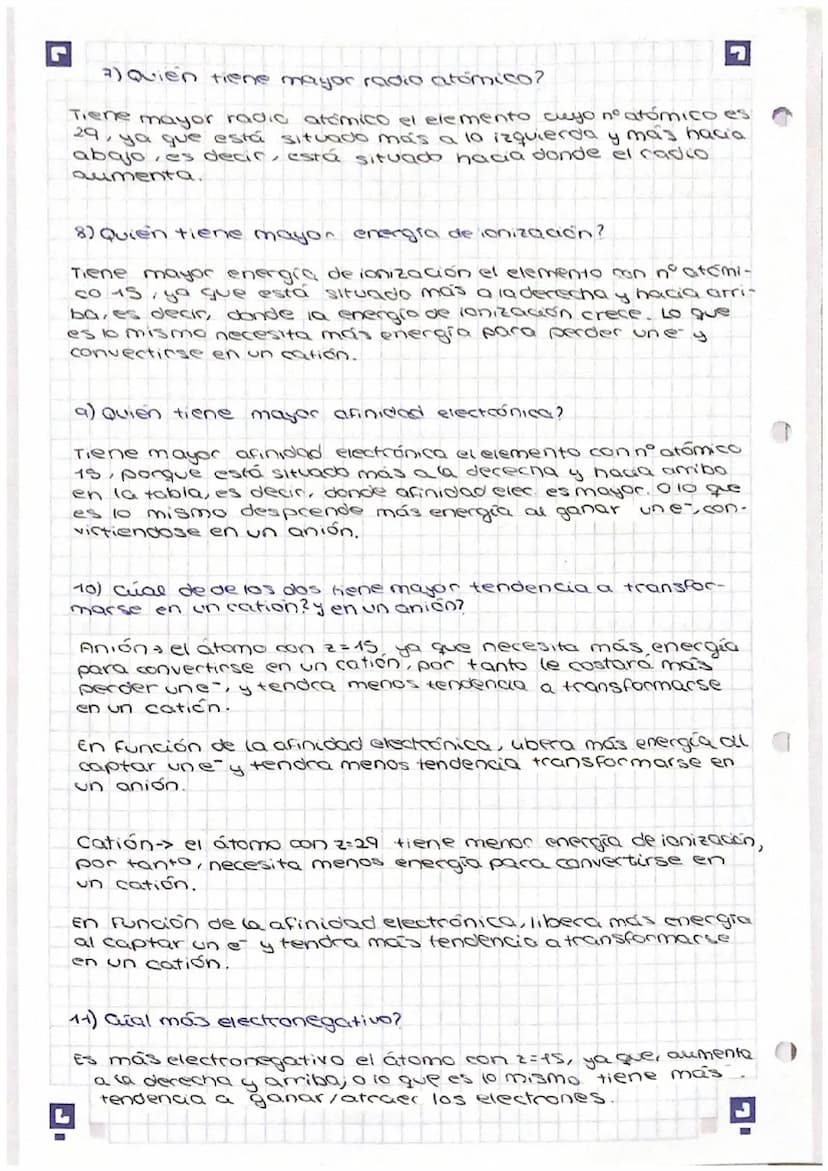 7) Quién tiene mayor radio atómico?
Tiene mayor radio atómico el elemento cuyo nº atómico es
29, ya que está situado más a la izquierda y más hacia
abajo, es decir, está situado hacia donde el radio
aumenta.
8) Quién tiene mayor energía de ionización?
Tiene mayor energía de ionización el elemento con nº atómi-
co 15, ya que está situado más a la derecha y hacia arri-
ba, es decir, donde la energía de ionización crece. Lo que
es lo mismo necesita más energía para perder un e⁻ y
convertirse en un catión.
9) Quién tiene mayor afinidad electrónica?
Tiene mayor afinidad electrónica el elemento con nº atómico
15, porque está situado más a la derecha y hacia arriba
en la tabla, es decir, donde afinidad elec es mayor. O lo que
es lo mismo desprende más energía al ganar un e⁻, con-
virtiendose en un anión.
10) Cúal de de los dos tiene mayor tendencia a transfor-
marse en un cation? y en un anión?
Anión→ el átomo con z=15, ya que necesita más energía
para convertirse en un catión, por tanto le costará más
perder un e⁻, y tendra menos tendencia a transformarse
en un catión.
En función de la afinidad electrónica, libera más energía al
captar un e⁻ y tendra menos tendencia transformarse en
un anión.
Catión-> el átomo con z=29 tiene menor energía de ionización,
por tanto, necesita menos energía para convertirse en
un catión.
En función de la afinidad electrónica, libera más energía
al captar un e⁻ y tendra más tendencia a transformarse
en un catión.
11) Cúal más electronegativo?
Es más electronegativo el átomo con z=15, ya que, aumenta
a la derecha y arriba, o lo que es lo mismo tiene más
tendencia a ganar/atraer los electrones.